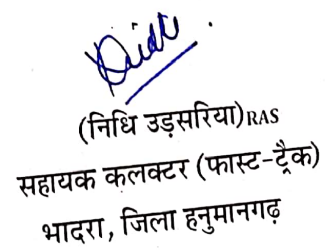 (निधि उड़सरिया)RAS
सहायक कलक्टर (फास्ट-ट्रैक)
भादरा, जिला हनुमानगढ़